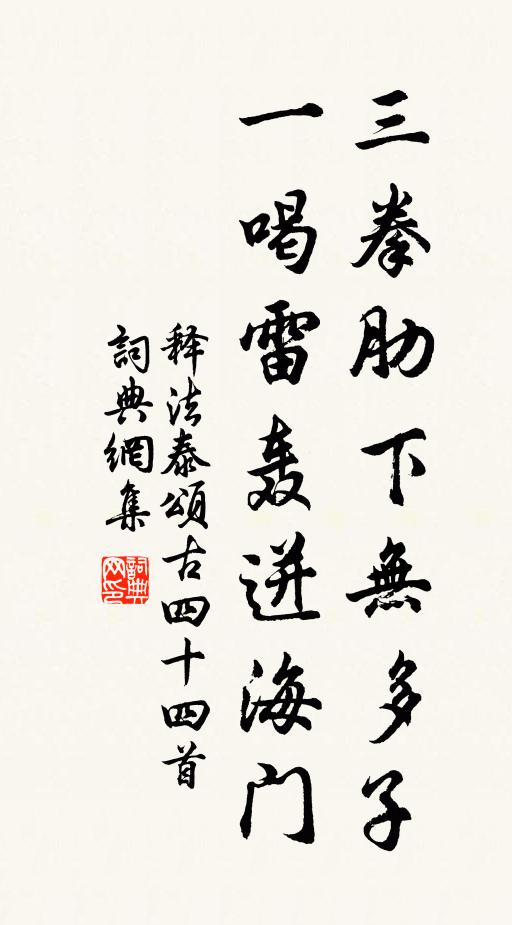 三拳肋下無多子
一喝雷轰迸海门
释法泰頌古四十四首
詞典網集
詞典网印